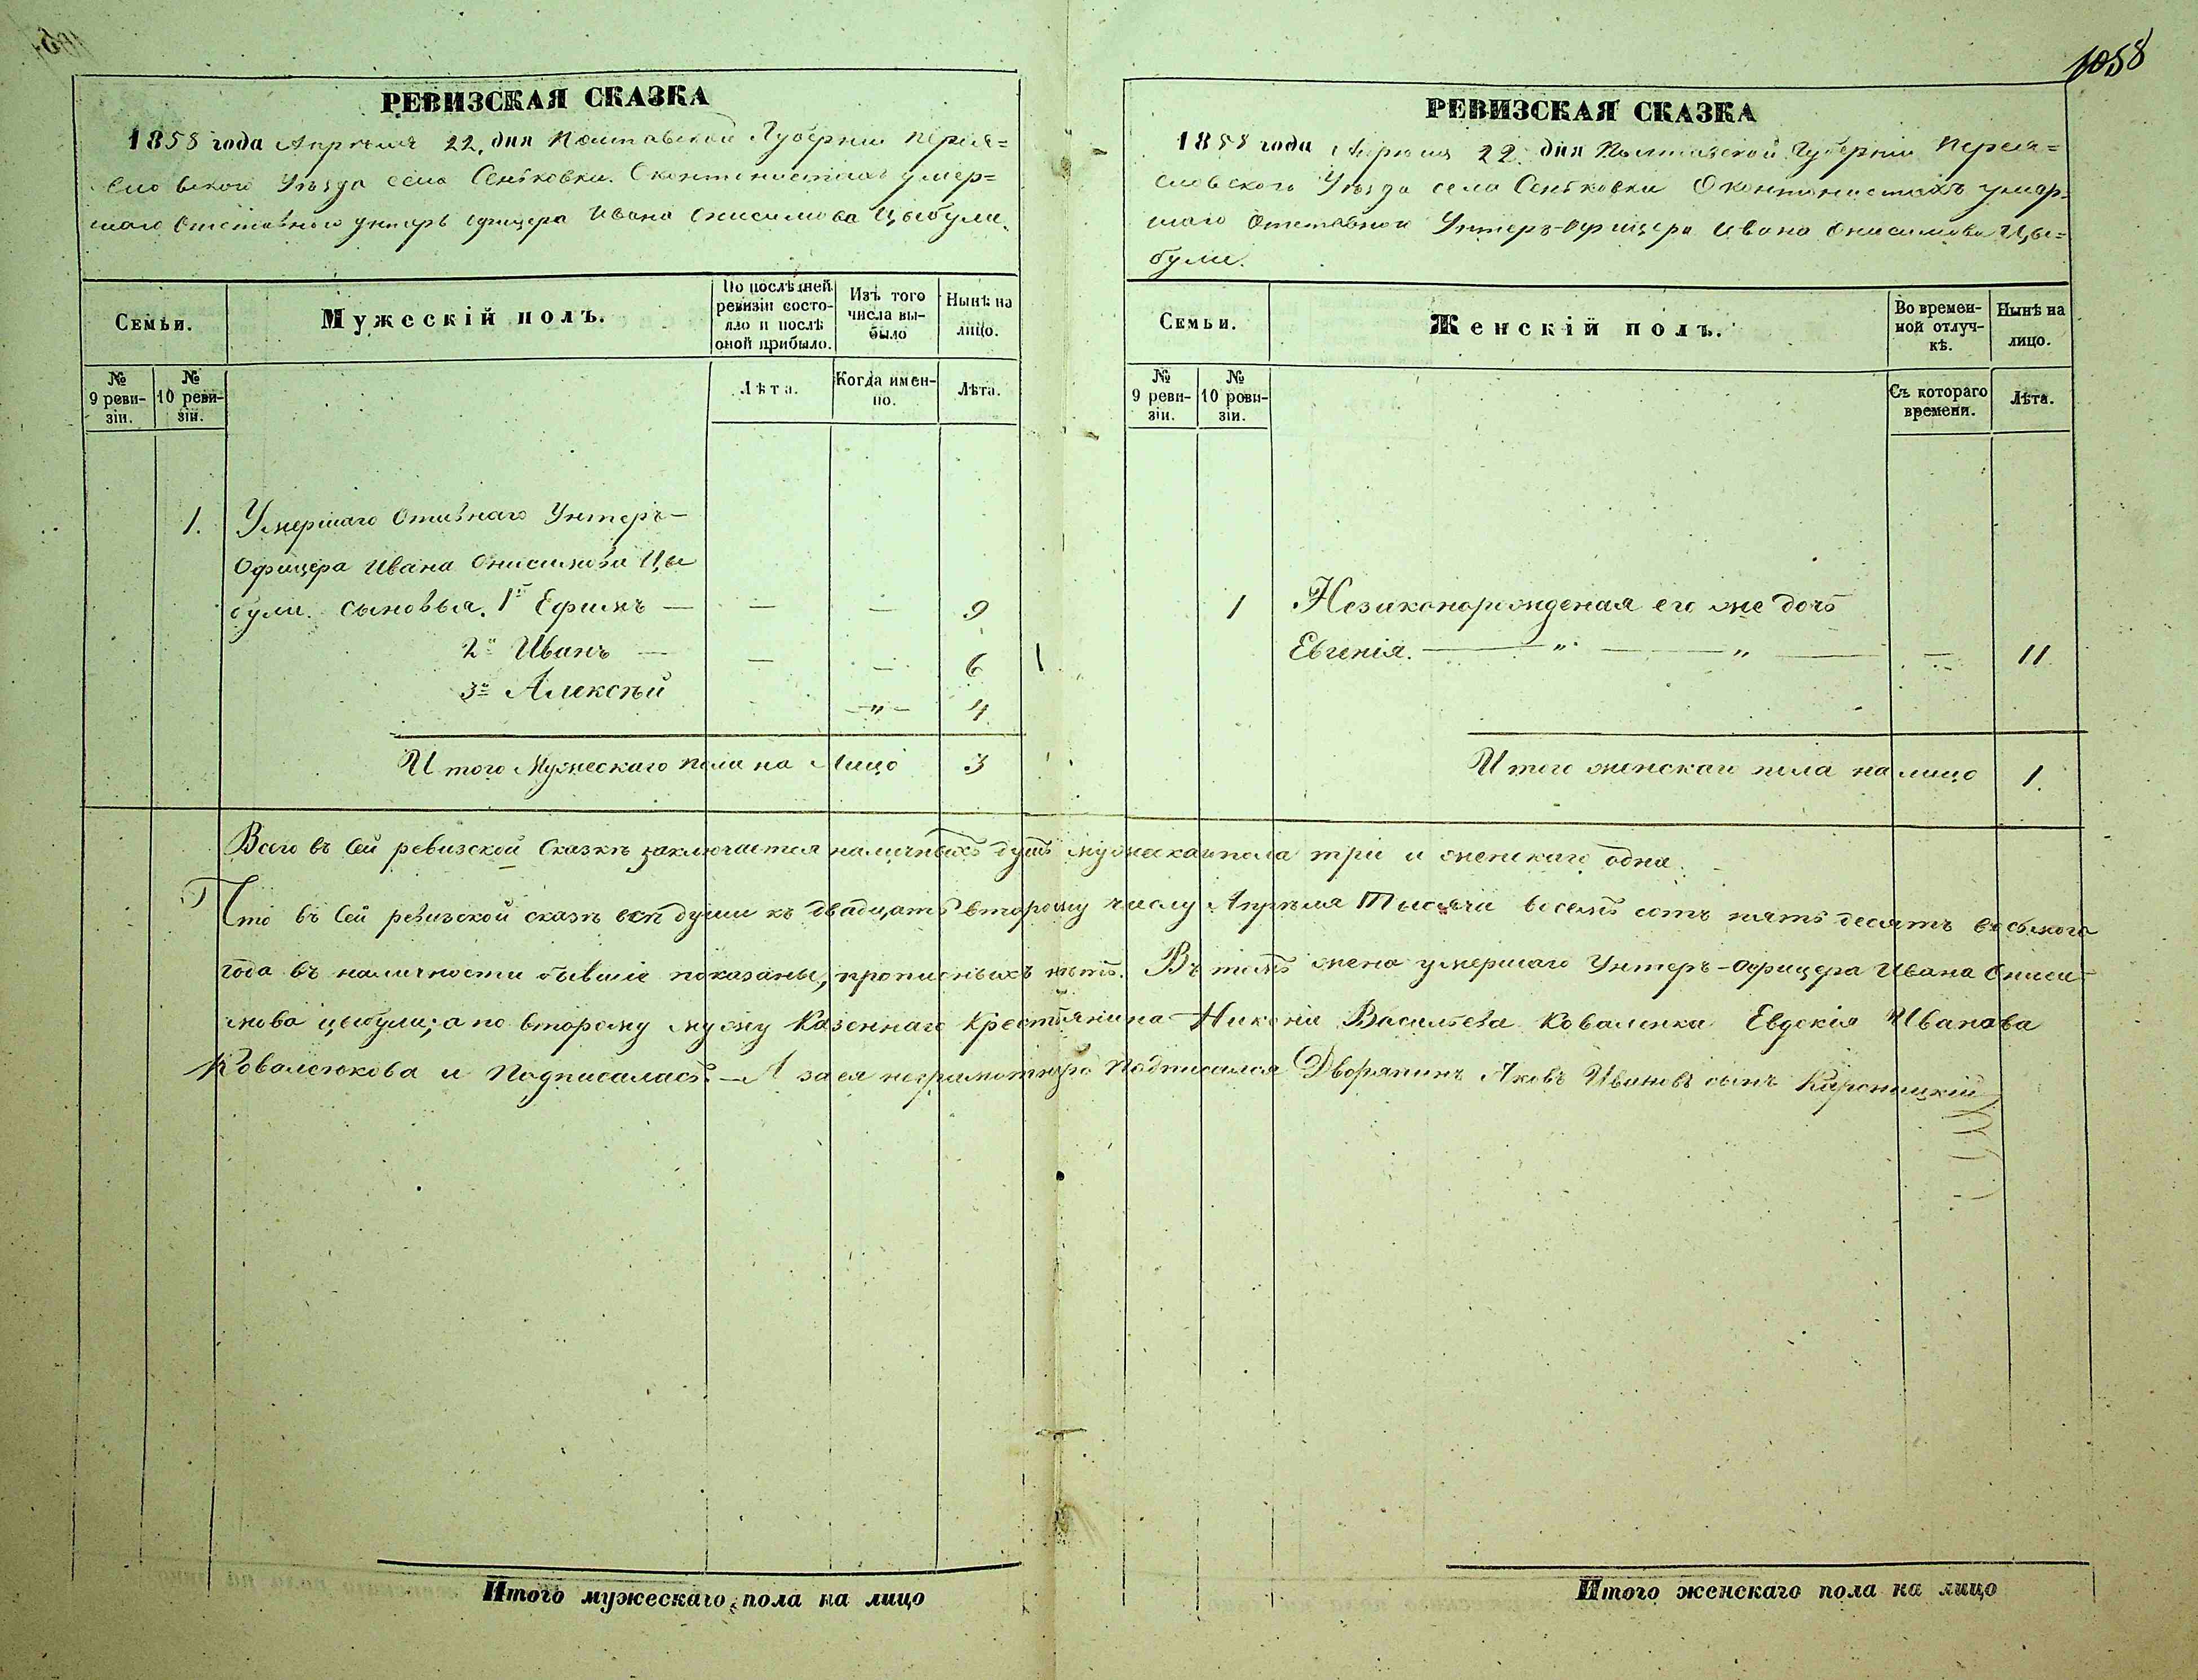 1058
РЕВИЗСКАЯ СКАЗКА
1858 года Апрѣля 22. дня Полтавской Губерніи Перея=
словского Уѣзда села Сеньковки. О контонистахъ умер=
шаго Отставного унтеръ офицера Ивана Онисимова Цыбули.
Семьи.
Мужескій полъ.
По послѣдней ревизіи состо-
яло и послѣ оной прибыло.
Изъ того числа вы-
было
Нынѣ на лицо.
№ 9 реви-
зіи.
№ 10 реви-
зіи.
Лѣта.
Когда имен-
но.
Лѣта.
1. Умершаго Отивнаго Унтеръ-
Офицера Ивана Онисимова Цы
були. сыновья. 1й Ефимъ — — — 9
2й Иванъ — — — 6
3й Алексѣй —"— 4
Итого Мужескаго пола на Лицо 3
РЕВИЗСКАЯ СКАЗКА
1858 года Апрѣля 22. дня Полтавской Губерніи Перея=
словского Уѣзда села Сеньковки О контонистахъ умер=
шаго Отставной Унтеръ-Офицера Ивана Онисимова Цы=
були.
Семьи.
Женскій полъ.
Во времен-
ной отлуч-
кѣ.
Нынѣ на лицо.
№ 9 реви-
зіи.
№ 10 реви-
зіи.
Съ котораго времени.
Лѣта.
1 Незаконорожденая его же дочь
Евгенія. — " — " — — 11
Итого женскаго пола на лицо 1.
Всего въ сей ревизской Сказкѣ заключается наличныхъ душъ мужескаго пола три и женскаго одна.
Что въ сей ревизской сказкѣ всѣ души къ двадцать второму числу Апрѣля Тысяча восемь сотъ пять десятъ восьмого
года въ наличности бывшіе показаны, прописныхъ нѣтъ. Въ томъ жена умершаго Унтеръ-Офицера Ивана Ониси-
мова цыбули; а по второму мужу Казеннаго Крестьянина Никона Васильева Коваленка Евдокія Иванова
и Подписалась. — А за ея неграмотную Подписался Дворянинъ Яковъ Ивановъ сынъ
Итого мужескаго пола на лицо
Итого женскаго пола на лицо